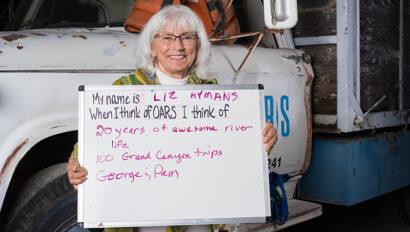 My name is LIZ HYMANS
When I think of OARS I think of
20 years of awesome river
life
100 Grand Canyon trips
George &, Pam
RS
241